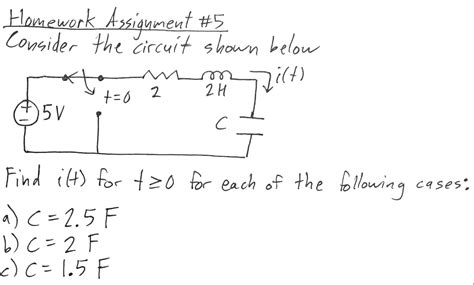 Homework Assignment #5
Consider the circuit shown below
i(t)
t=0
2
2H
5V
C
Find i(t) for t≥0 for each of the following cases:
a) C = 2.5 F
b) C = 2 F
c) C = 1.5 F